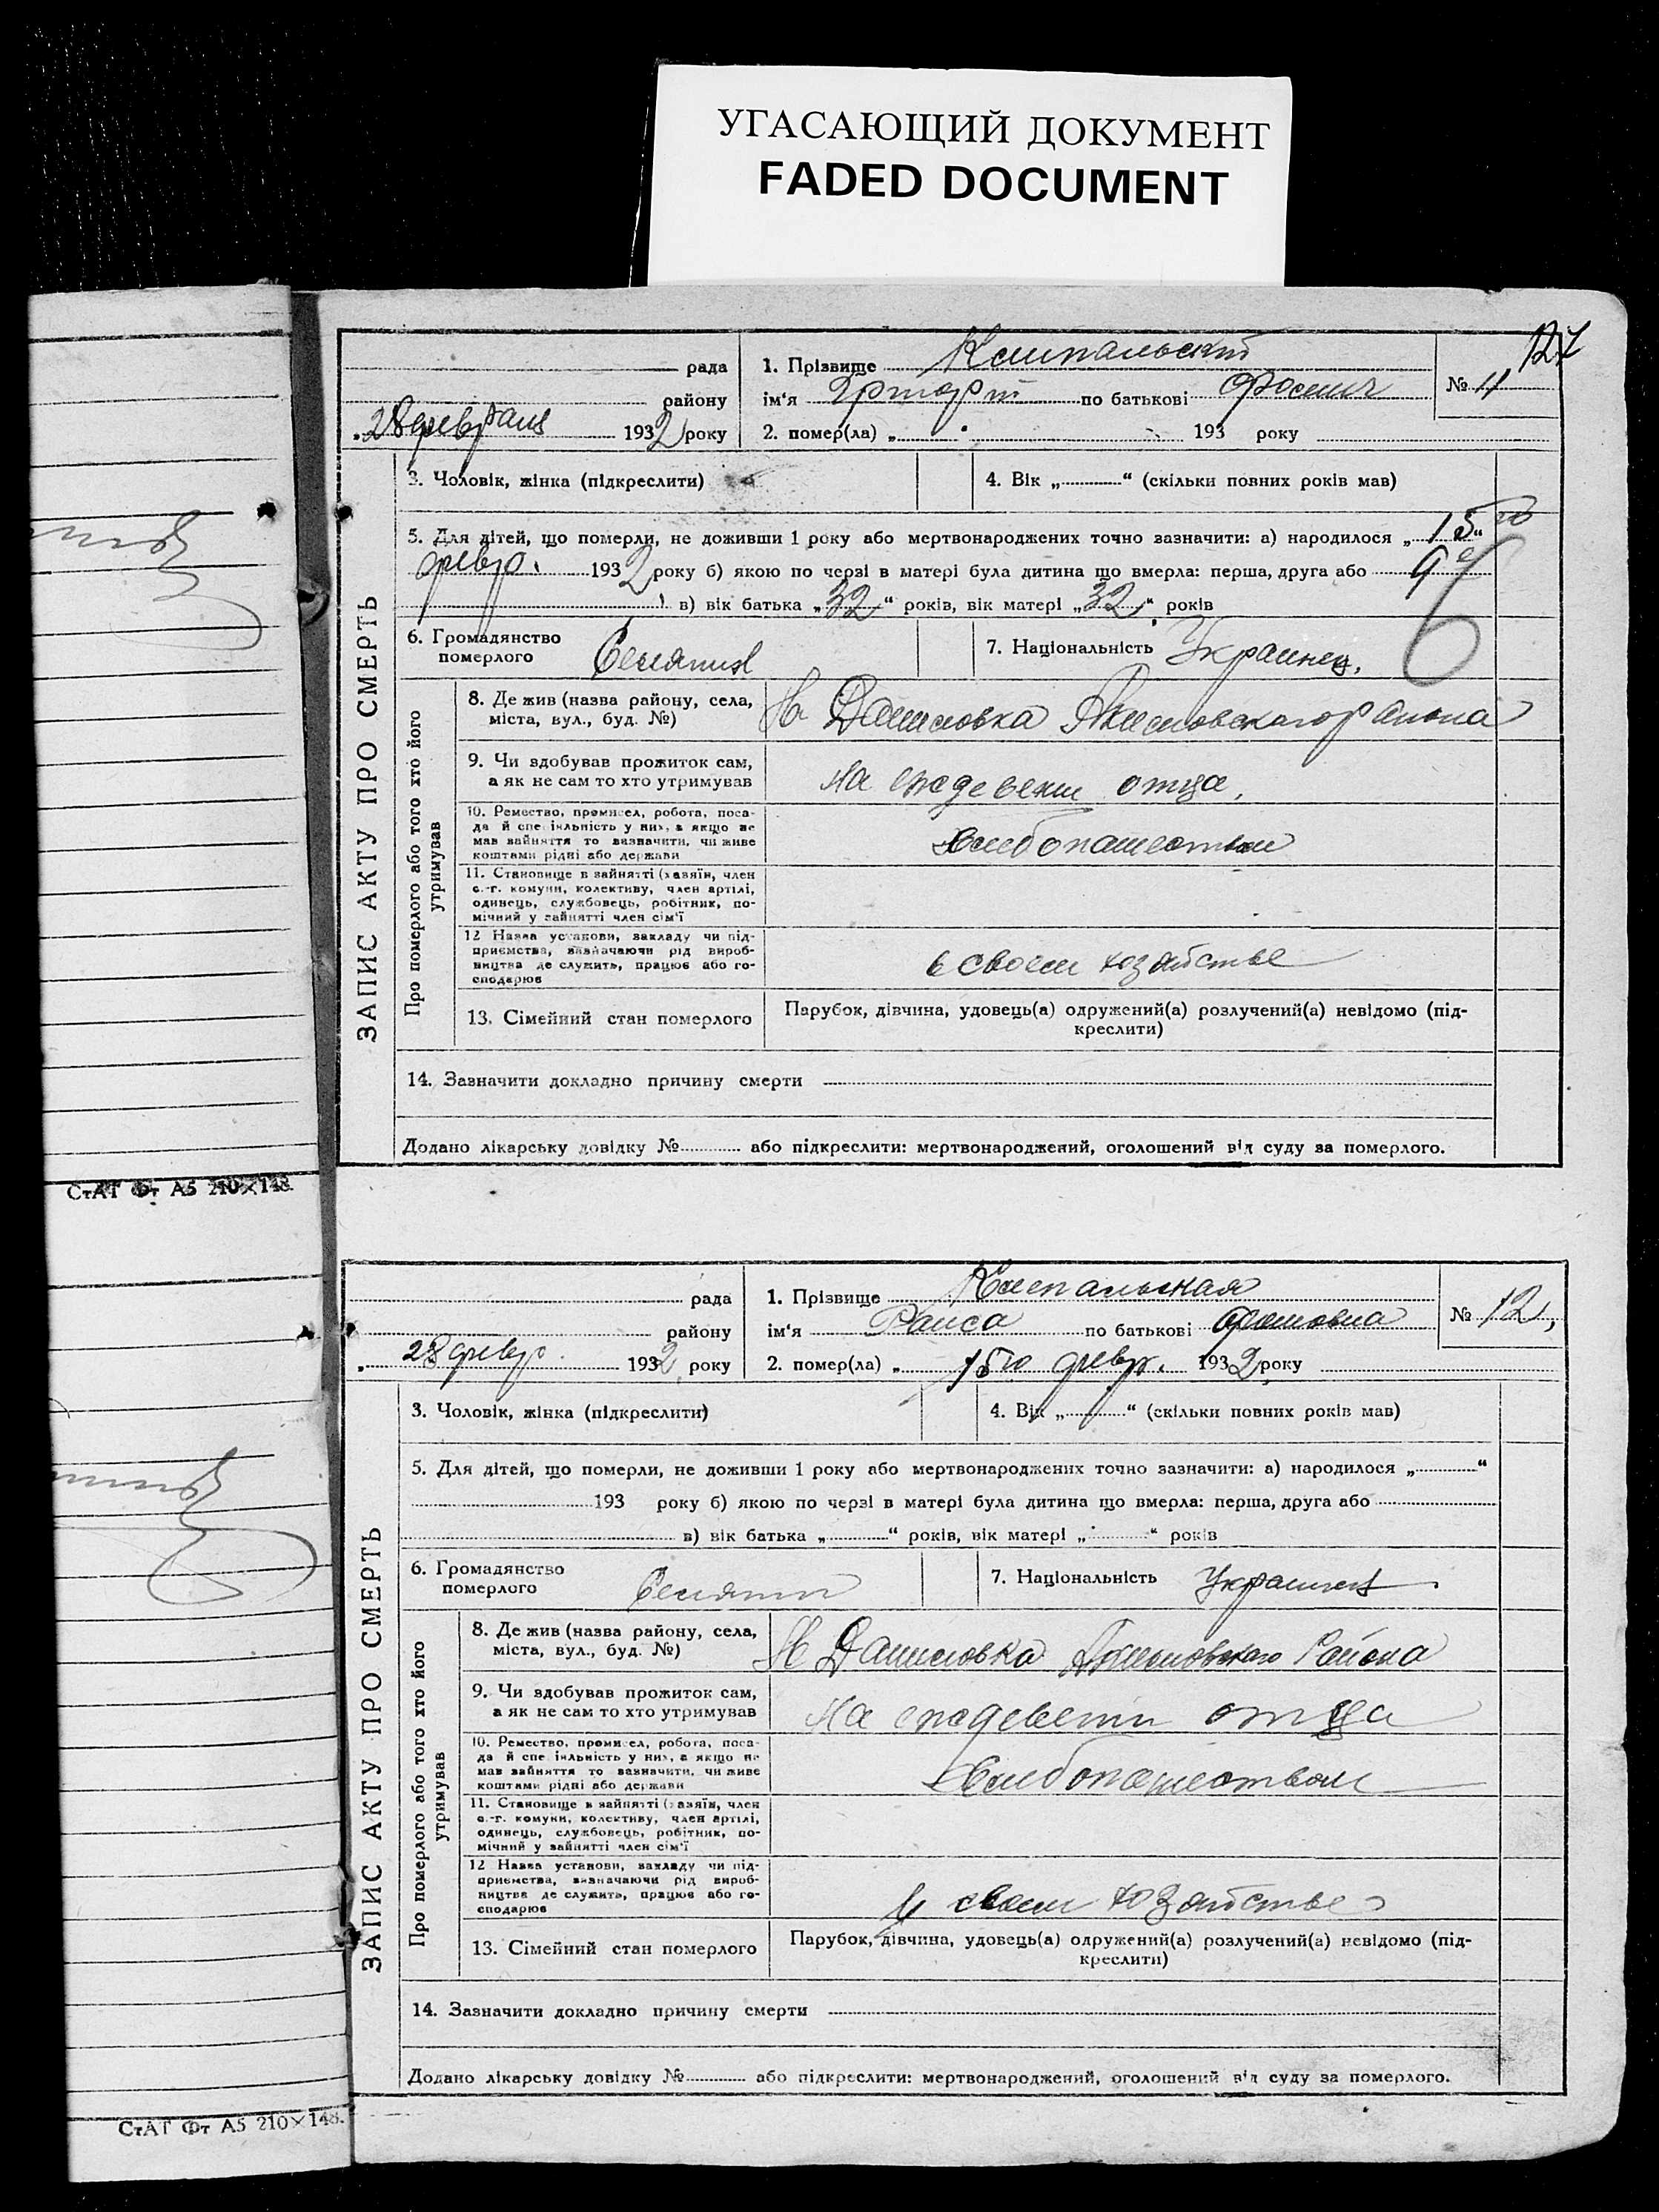 УГАСАЮЩИЙ ДОКУМЕНТ
FADED DOCUMENT
127
рада
району
„28 февраля 1932 року
1. Прізвище
ім'я по батькові
№ 11
2. помер(ла) „ 193 року
3. Чоловік, жінка (підкреслити)
4. Вік „ “ (скільки повних років мав)
5. Для дітей, що померли, не доживши 1 року або мертвонароджених точно зазначити: а) народилося „15го“
февр. 1932 року б) якою по черзі в матері була дитина що вмерла: перша, друга або
в) вік батька „32“ років, вік матері „32“ років
6. Громадянство
померлого
7. Національність Украинец.
ЗАПИС АКТУ ПРО СМЕРТЬ
Про померлого або того хто його
утримував
8. Де жив (назва району, села,
міста, вул., буд. №)
Н Даниловка Акимовского района
9. Чи здобував прожиток сам,
а як не сам то хто утримував
на отца,
10. Ремество, промисел, робота, поса-
да й спеціяльність у них, а якщо не
мав зайняття то визначити, чи живе
коштами рідні або держави
хлебопашеством
11. Становище в зайнятті (хазяїн, член
с.-г. комуни, колективу, член артілі,
одинець, службовець, робітник, по-
мічний у зайнятті член сім'ї
12 Назва установи, закладу чи під-
приємства, зазначаючи рід вироб-
ництва де служить, працює або го-
сподарює
в своем хозяйстве
13. Сімейний стан померлого
Парубок, дівчина, удовець(а) одружений(а) розлучений(а) невідомо (під-
креслити)
14. Зазначити докладно причину смерти
Додано лікарську довідку № або підкреслити: мертвонароджений, оголошений від суду за померлого.
СтАТ Фт А5 210×148.
рада
району
„ 28 февр. 1932 року
1. Прізвище
ім'я Раиса по батькові
№ 12,
2. помер(ла) „ 15го февр. 1932 року
3. Чоловік, жінка (підкреслити)
4. Вік „ “ (скільки повних років мав)
5. Для дітей, що померли, не доживши 1 року або мертвонароджених точно зазначити: а) народилося „ “
193 року б) якою по черзі в матері була дитина що вмерла: перша, друга або
в) вік батька „ “ років, вік матері „ “ років
6. Громадянство
померлого
7. Національність
ЗАПИС АКТУ ПРО СМЕРТЬ
Про померлого або того хто його
утримував
8. Де жив (назва району, села,
міста, вул., буд. №)
Н Даниловка Акимовского Района
9. Чи здобував прожиток сам,
а як не сам то хто утримував
на отца
10. Ремество, промисел, робота, поса-
да й спеціяльність у них, а якщо не
мав зайняття то визначити, чи живе
коштами рідні або держави
хлебопашеством
11. Становище в зайнятті (хазяїн, член
с.-г. комуни, колективу, член артілі,
одинець, службовець, робітник, по-
мічний у зайнятті член сім'ї
12 Назва установи, закладу чи під-
приємства, зазначаючи рід вироб-
ництва де служить, працює або го-
сподарює
в своем хозяйстве
13. Сімейний стан померлого
Парубок, дівчина, удовець(а) одружений(а) розлучений(а) невідомо (під-
креслити)
14. Зазначити докладно причину смерти
Додано лікарську довідку № або підкреслити: мертвонароджений, оголошений від суду за померлого.
СтАТ Фт А5 210×148.